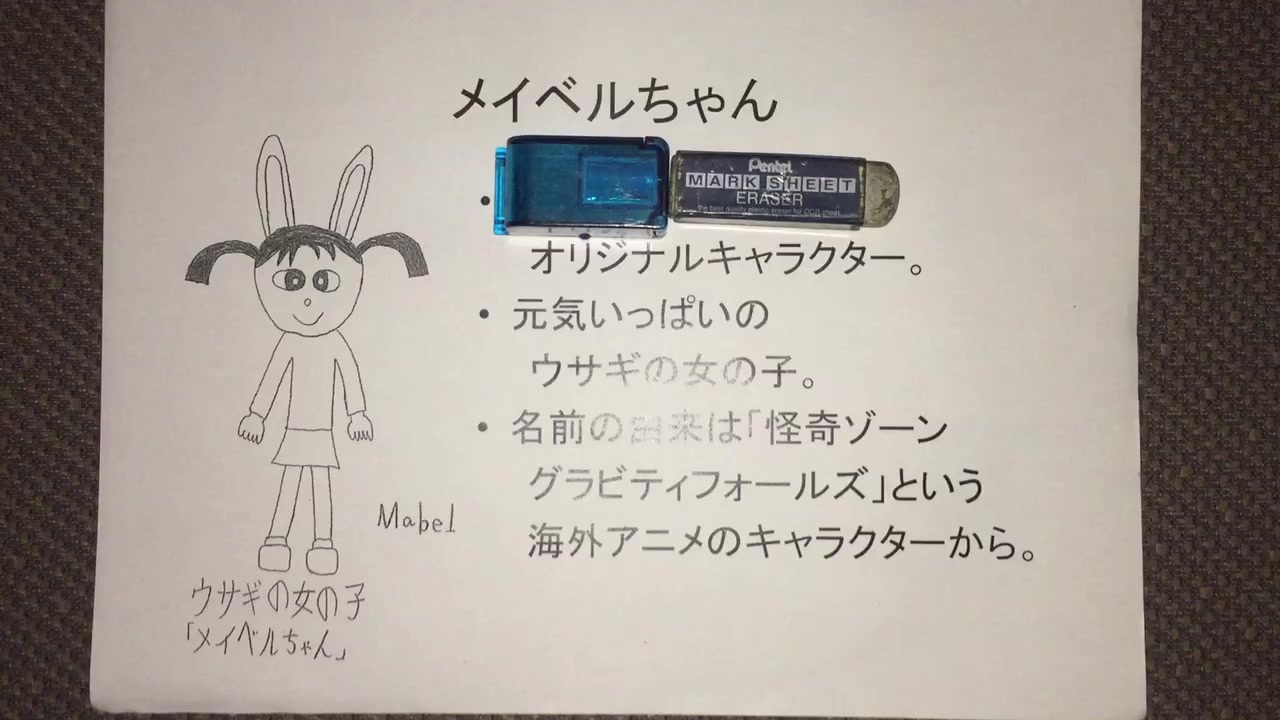 メイベルちゃん
Pentel
MARK SHEET
ERASER
the best quality plastic eraser for OCR sheet
•
オリジナルキャラクター。
• 元気いっぱいの
ウサギの女の子。
• 名前の由来は「怪奇ゾーン
グラビティフォールズ」という
海外アニメのキャラクターから。
Mabel
ウサギの女の子
「メイベルちゃん」